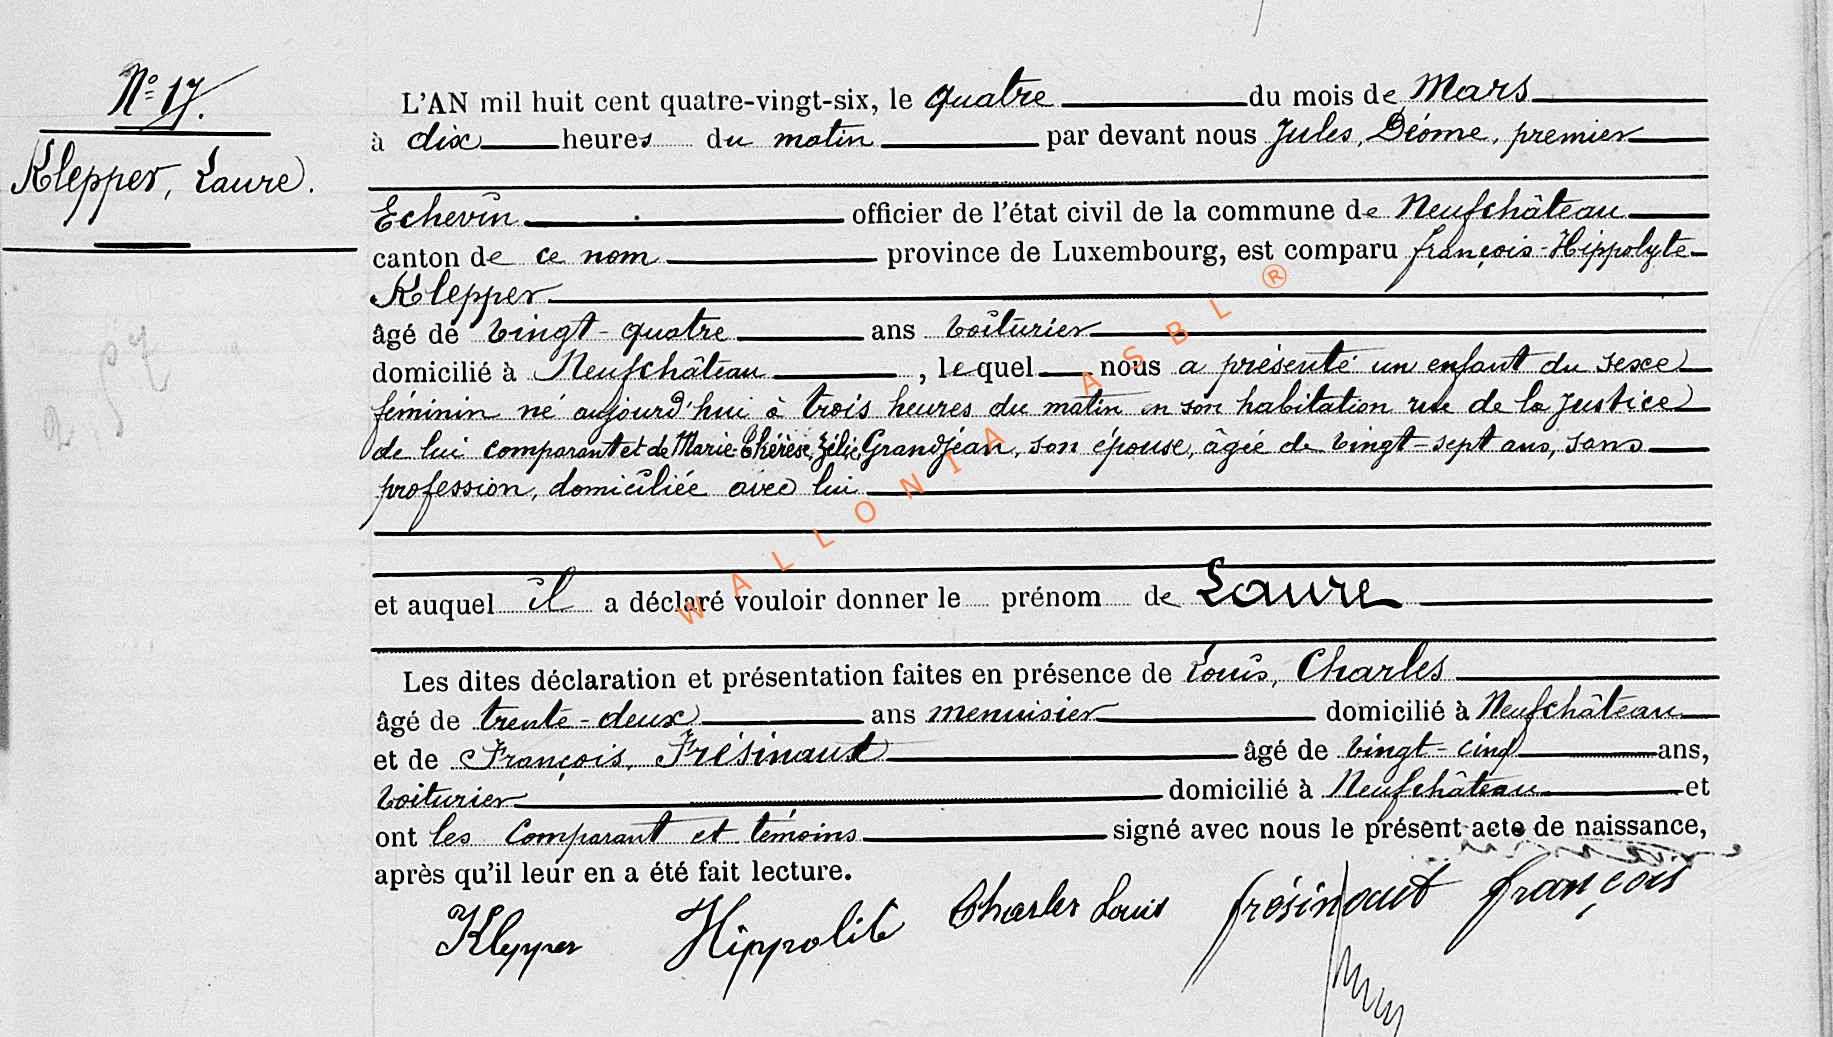 N° 17.
Klepper, Laure.
L'AN mil huit cent quatre-vingt-six, le quatre du mois de Mars
à dix heures du matin par devant nous Jules, Déome, premier
Echevin officier de l'état civil de la commune de Neufchâteau
canton de ce nom province de Luxembourg, est comparu françois-Hippolyte
Klepper
âgé de vingt-quatre ans voiturier
domicilié à Neufchâteau, lequel nous a présenté un enfant du sexe
féminin né aujourd'hui à trois heures du matin en son habitation rue de la Justice
de lui comparant et de Marie-Thérèse, Zélie, Grandjean, son épouse, âgée de vingt-sept ans, sans
profession, domiciliée avec lui
et auquel il a déclaré vouloir donner le prénom de Laure
Les dites déclaration et présentation faites en présence de Louis, Charles
âgé de trente-deux ans menuisier domicilié à Neufchâteau
et de François, Frésinaut âgé de vingt-cinq ans,
voiturier domicilié à Neufchâteau et
ont les comparant et témoins signé avec nous le présent acte de naissance,
après qu'il leur en a été fait lecture.
Klepper Hippolite Charles Louis frésinaut françois
WALLONIA ASBL ®